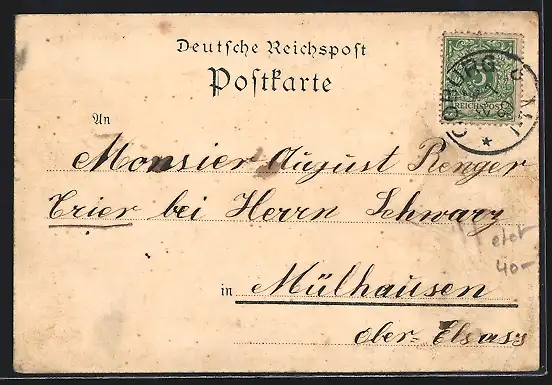 Deutsche Reichspost
Postkarte
5
REICHSPOST
COBURG
An
Monsier August Renger
Trier bei Herrn Schwarz
in Mülhausen
Ober-Elsass
40-